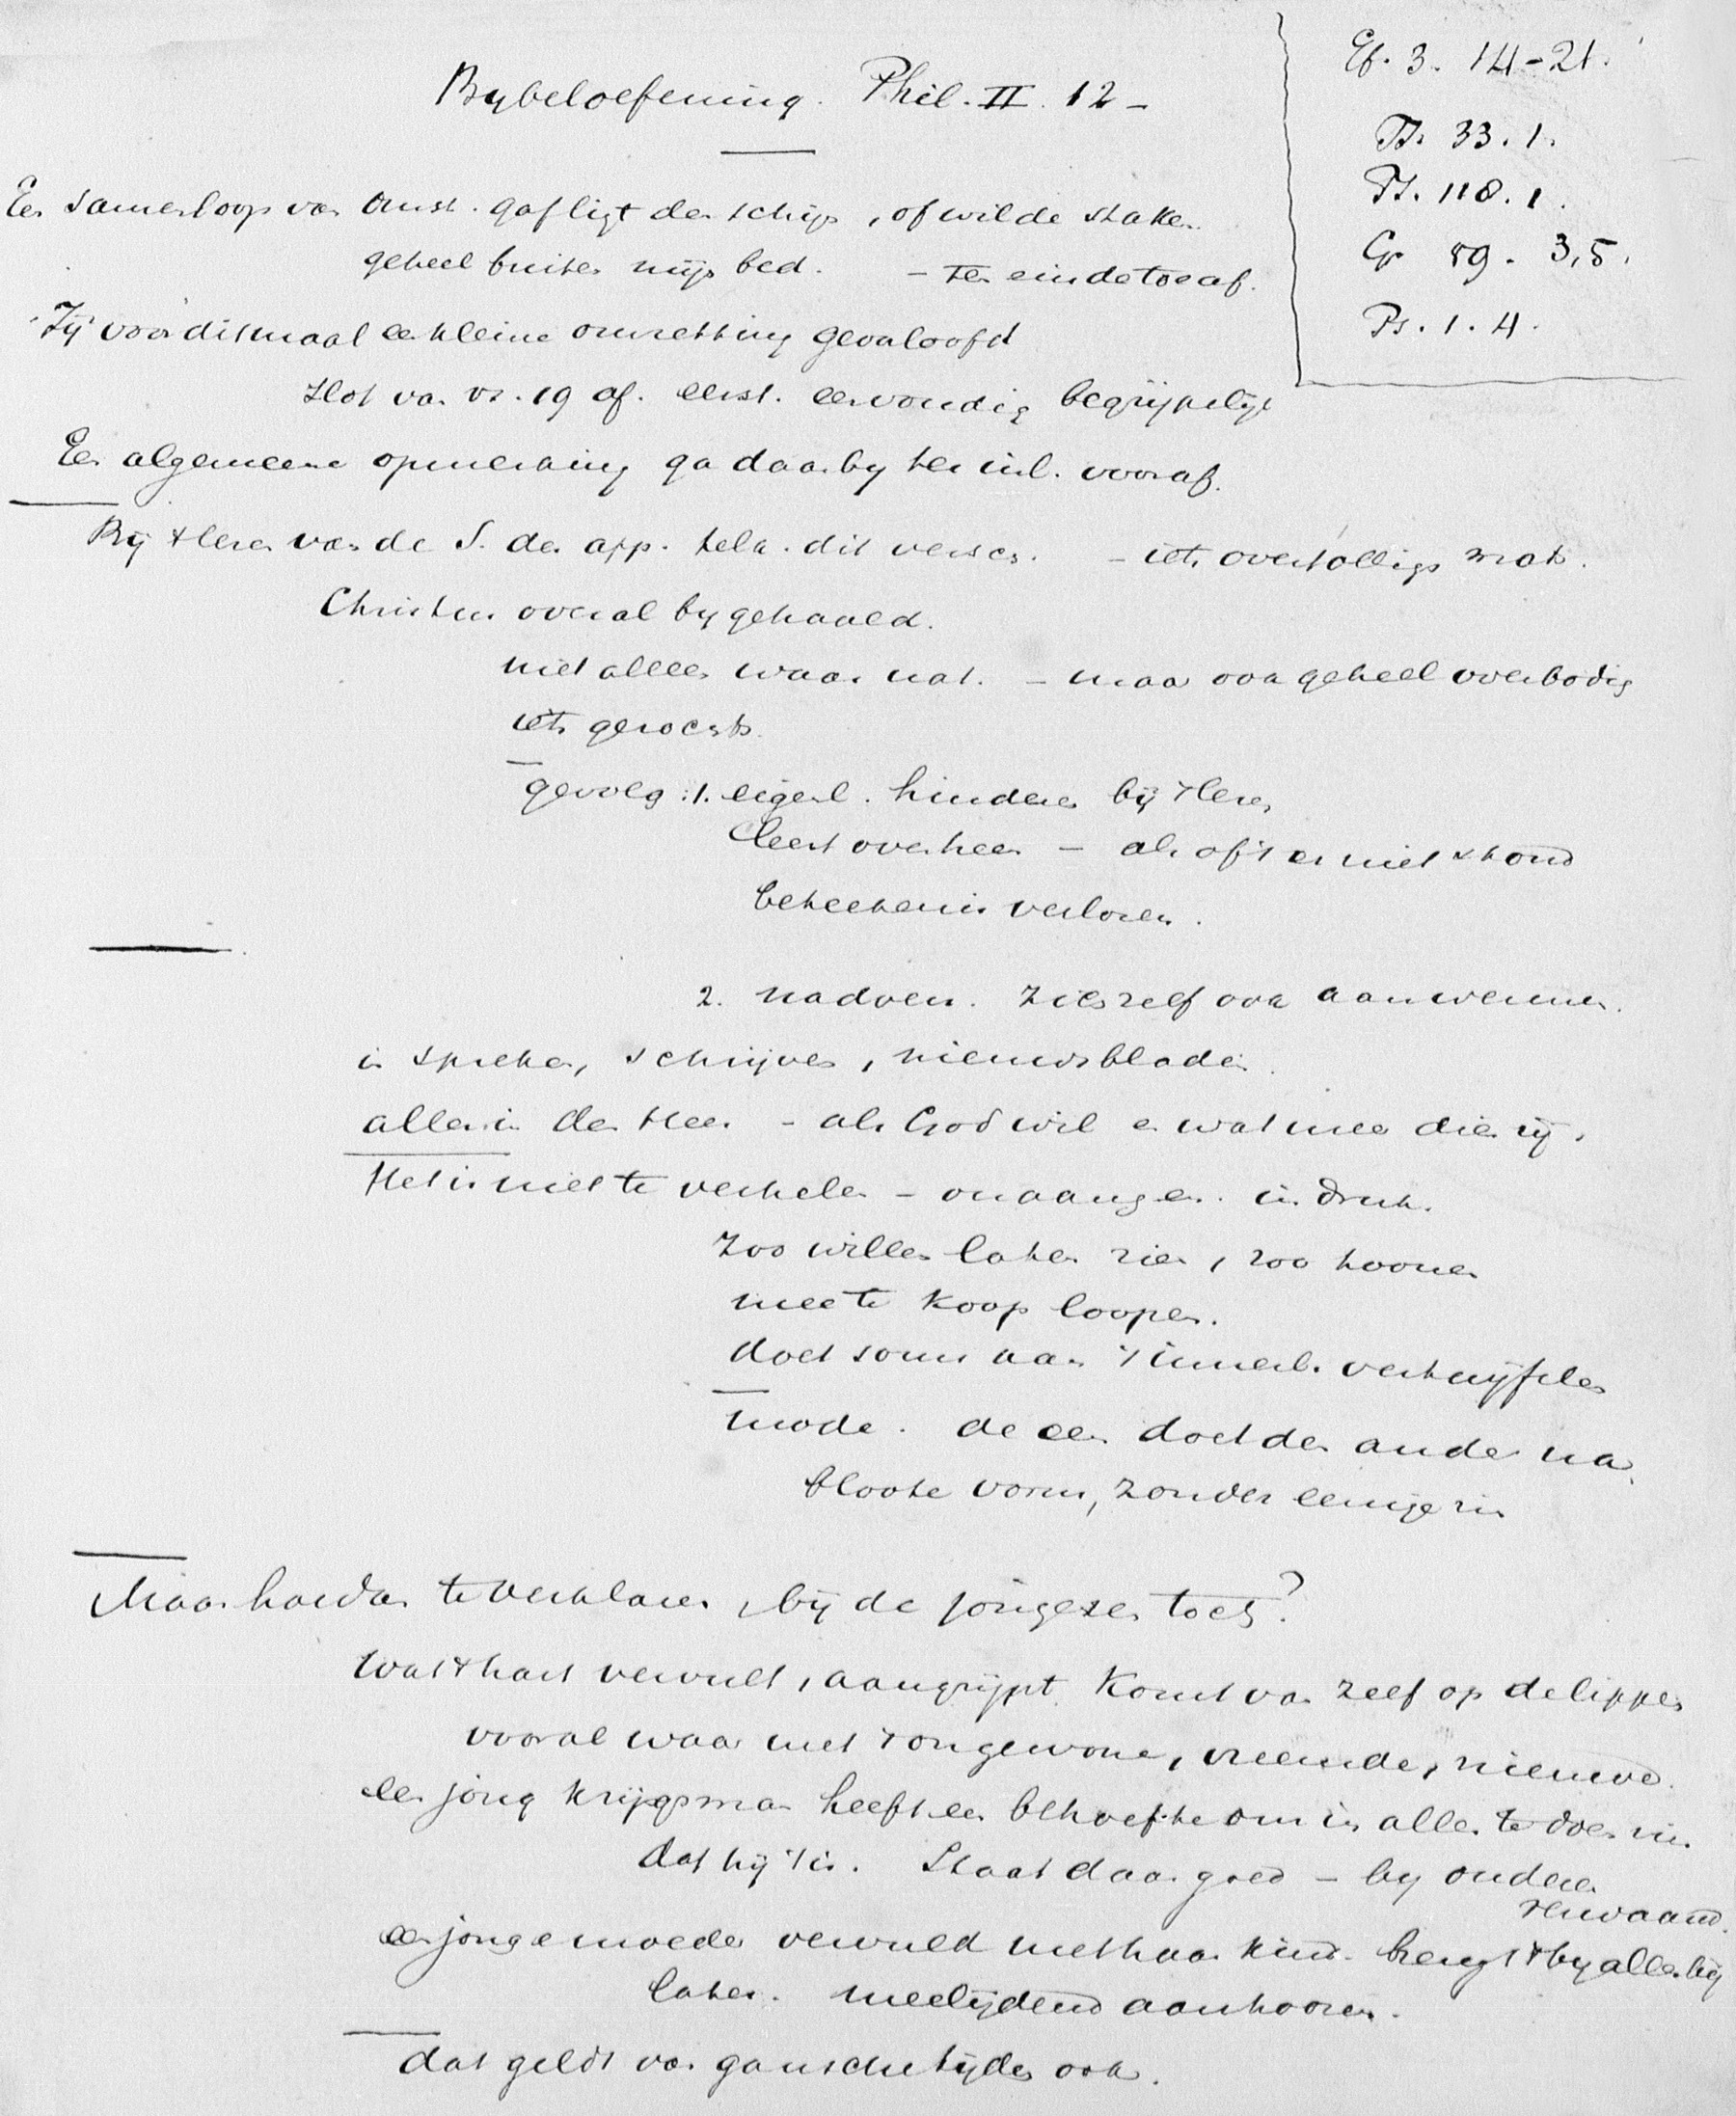 Bijbeloefening. Phil. II. 12 –
Ef. 3. 14-21.
Ps. 33. 1.
Ps. 118. 1.
Gz 89. 3,5.
Ps. 1. 4.
Een samenloop van omst. gaf ligt den schijn, of wilde staken.
geheel buiten mijn bed. – Ten einde toe af.
Zij voor ditmaal een kleine omzetting geoorloofd
slot van vs. 19 af. eerst. eenvoudig begrijpelijk
Een algemeene opmerking ga daarby ter inl. vooraf.
Bij 't lezen van de S. der app. telk. dit verscs. – iets overtolligs
Christus overal bygehaald.
niet alleen waar nat. – maar ook geheel overbodig
iets gezochts.
gevolg: 1. eigenl. hinderen bij 't lezen
leest overheen – als of 't er niet stond
beteekenis verloren.
2. nadoen. zich zelf ook aanwennen.
in spreken, schrijven, nieuwsbladen.
alles in den Heer – als God wil en wat meer dies zij.
Het is niet te verhelen – onaangen. indruk.
Zoo willen laten zien, zoo hooren
mee te koop loopen.
doet soms aan 't innerl. vertwijfelen
mode. de een doet den ander na.
bloote vorm, zonder eenige zin
Maar hoe dan te verklaren, bij de
Wat 't hart vervult, aangrijpt. komt van zelf op de lippen
vooral waar met 't ongewone, vreemde, nieuwe.
een jong krijgsman heeft een behoefte om in alles te doen zien
dat hij 't is. Staat daar goed – by oudere
een jonge moeder vervuld met haar kind. brengt 't by alles bij
later. meelijdend aanhooren.
dat geldt van gansche tijden ook.